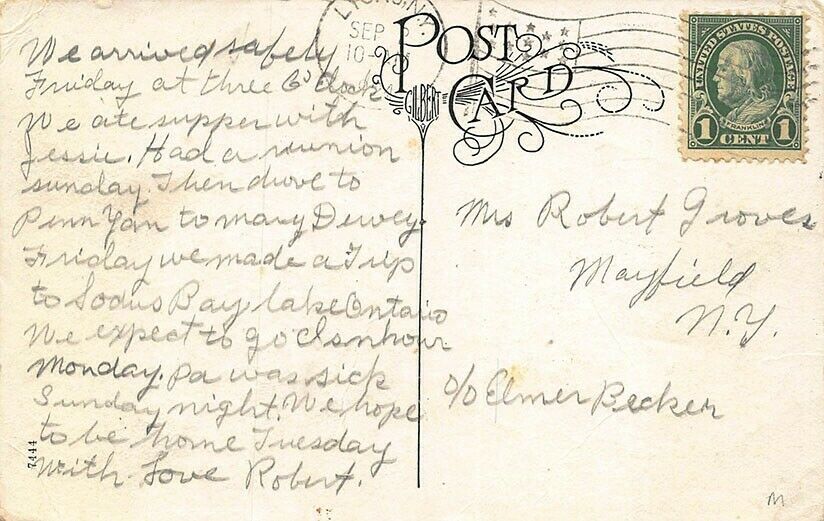 We arrived safely
Friday at three O'clock
We ate supper with
Jessie. Had a reunion
sunday. Then drove to
Penn Yan to mary Dewey.
Friday we made a Trip
to Sodus Bay, lake Ontario
We expect to go
Monday. Pa was sick
Sunday night. We hope
to be home Tuesday
With Love Robert.
7444
LYONS, N.Y.
SEP
10
POST
CARD
GILBERT
UNITED STATES POSTAGE
FRANKLIN
1 CENT 1
Mrs Robert Groves
Mayfield
N.Y.
c/o Elmer Becker
M